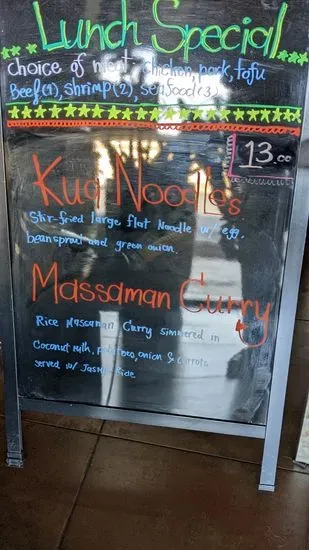 Lunch Special
Choice of meat, chicken, pork, tofu
Beef(1), shrimp(2), seafood(3)
13.00
Kua Noodles
Stir-fried large flat Noodle w/ egg,
beansprout and green onion.
Massaman Curry
Rice Massaman Curry simmered in
Coconut milk, potatoes, onion & carrots
served w/ Jasmine